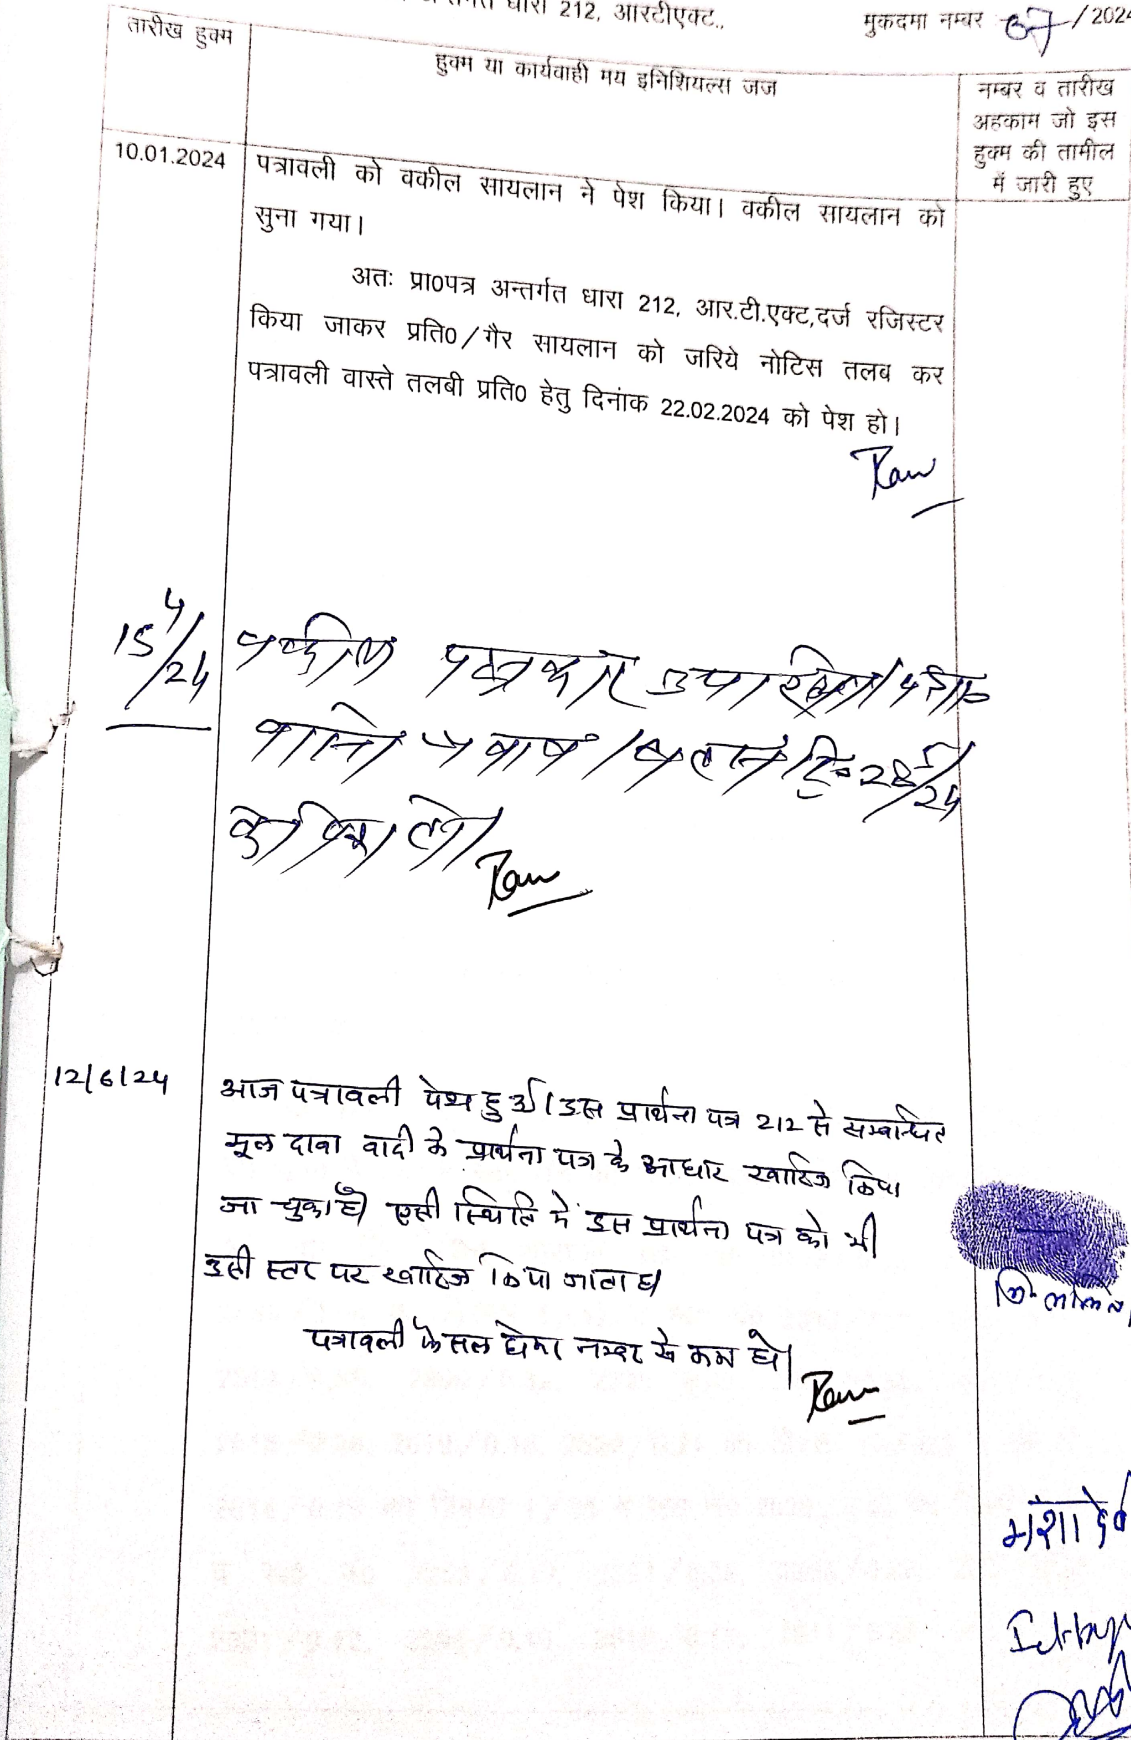 धारा 212, आरटीएक्ट.,
मुकदमा नम्बर 67/2024
तारीख हुक्म
हुक्म या कार्यवाही मय इनिशियल्स जज
नम्बर व तारीख
अहकाम जो इस
हुक्म की तामील
में जारी हुए
10.01.2024
पत्रावली को वकील सायलान ने पेश किया। वकील सायलान को
सुना गया।
अतः प्रा0पत्र अन्तर्गत धारा 212, आर.टी.एक्ट,दर्ज रजिस्टर
किया जाकर प्रति0/गैर सायलान को जरिये नोटिस तलब कर
पत्रावली वास्ते तलबी प्रति0 हेतु दिनांक 22.02.2024 को पेश हो।
15/4/24
वकील उपस्थित।
वास्ते दि० 28/5/24
12/6/24
आज पत्रावली पेश हुई। इस प्रार्थना पत्र 212 से सम्बन्धित
मूल दावा वादी के प्रार्थना पत्र के आधार खारिज किया
जा चुका है। एसी स्थिति में इस प्रार्थना पत्र को भी
इसी स्तर पर खारिज किया जाता है।
पत्रावली फैसल होकर नम्बर से कम हो।